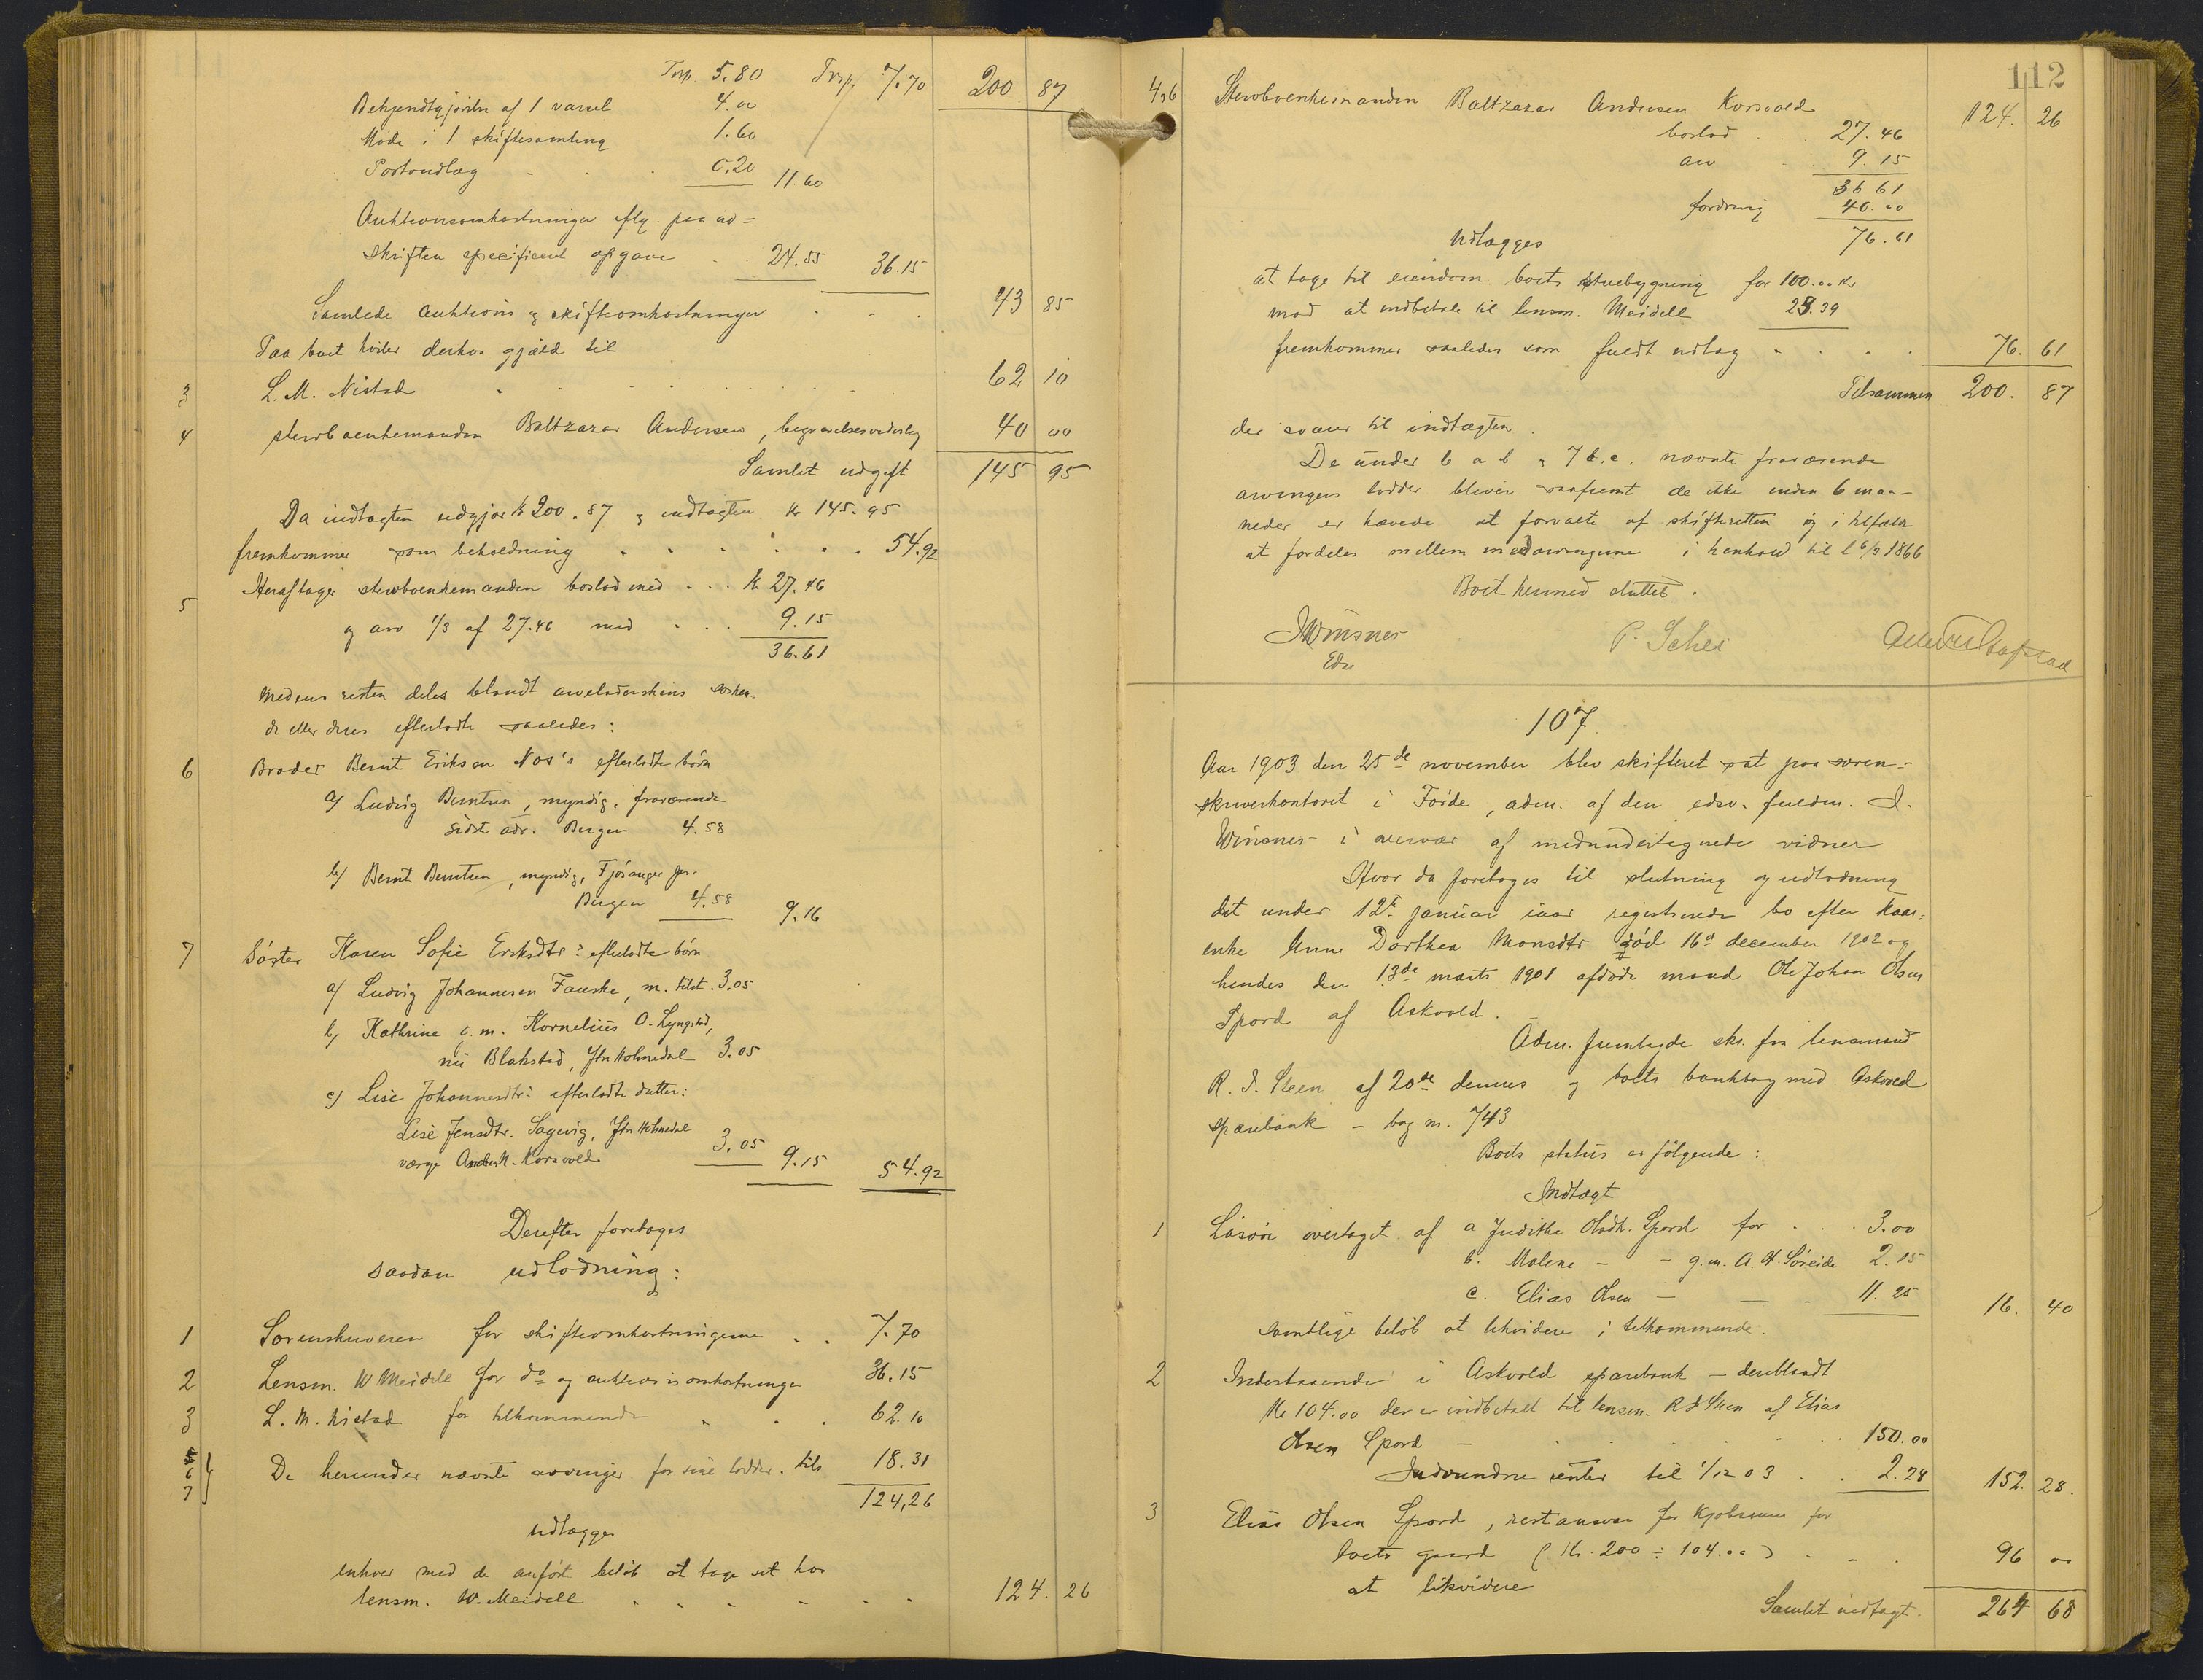 Trsp. 5.80 Trsp. 7.70 200 87
Bekjendtgjørelse af 1 varsel 4.00
Møde i 1 skiftesamling 1.60
Portoudlæg 0.20 11.60
Auktionsomkostninger iflg. paa ud=
skriften specificeret opgave 24.55 36.15
Samlede auktions og skifteomkostninger 43 85
Paa boet hviler derhos gjæld til
3 L. M. Nistad 62 10
4 stervboenkemanden Baltzazar Andersen, begravelsesvederlag 40 00
Samlet udgift 145 95
Da indtægten udgjør kr 200.87 og indtægten kr 145.95
fremkommer som beholdning 54.92
5 Heraf tager stervboenkemanden boslod med kr 27.46
og arv 1/3 af 27.46 med 9.15
36.61
medens resten deles blandt arveladerskens søsken-
de eller disses efterladte saaledes:
6 Broder Bernt Eriksen Nos's efterladte børn
a) Ludvig Berntsen, myndig, fraværende
sidst adr. Bergen 4.58
b) Bernt Berntsen, myndig, Fjøsanger pr.
Bergen 4.58 9.16
7 Søster Karen Sofie Eriksdtr's efterladte børn
a) Ludvig Johannesen Fauske, m. tilst. 3.05
b) Kathrine g. m. Kornelius O. Lyngstad,
nu Blakstad, Ytre Holmedal 3.05
c) Lise Johannesdtr's efterladte datter:
Lise Jensdtr. Sagvig, Ytre Holmedal
værge Anders Korsvold 3.05 9.15 54.92
Derefter foretoges
saadan udlodning:
1 Sorenskriveren for skifteomkostningerne 7.70
2 Lensm. W Meidell for do og auktionsomkostninger 36.15
3 L. M. Nistad for tilkommende 62.10
5 6 7 De herunder nævnte arvinger for sine lodder, tils 18.31
124,26
udlægges
enhver med de anførte beløb at tage ut hos
lensm. W. Meidell 124. 26
112
4,6 Stervboenkemanden Baltzazar Andersen Korsvold 124. 26
boslod 27.46
arv 9.15
36 61
fordring 40.00
Udlægges 76.61
at tage til eiendom boets stuebygning for 100.00 kr
mod at indbetale til lensm. Meidell 23.39
fremkommer saaledes som fuldt udlæg 76. 61
Tilsammen 200. 87
der svarer til indtægten.
De under 6 a b og 7 b.c. nævnte fraværende
arvingers lodder bliver saafremt de ikke inden 6 maa-
neder er hævede at forvalte af skifteretten og i tilfælde
at fordeles mellem medarvingerne i henhold til l 6/3 1866
Boet hermed sluttet.
JWinsnes P. Schei
Edsv
107.
Aar 1903 den 25de november blev skifteret sat paa soren-
skriverkontoret i Førde, adm. af den edsv. fuldm. J.
Winsnes i overvær af medundertegnede vidner
Hvor da foretoges til slutning og udlodning
det under 12te januar iaar registrerede bo efter kaar-
enke Anne Dorthea Monsdtr død 16de december 1902 og
hendes den 13de marts 1901 afdøde mand Ole Johan Olsen
Spord af Askvold.
Adm. fremlagde skr. fra lensmand
R. J. Steen af 20de dennes og boets bankbog med Askvold
sparebank - bog nr. 743
Boets status er følgende:
Indtægt
1 Løsøre overtaget af a Judithe Olsdtr. Spord for 3.00
b. Malene - - g.m. A. H. Søreide 2.15
c. Elias Olsen - - 11.25 16. 40
samtlige beløb at likvidere i tilkommende.
2 Indestaaende i Askvold sparebank - deriblandt
Kr 104.00 der er indbetalt til lensm. R J Steen af Elias
Olsen Spord - 150.00
Indvundne renter til 1/12 03 2.28 152. 28.
3 Elias Olsen Spord, restansvar for kjøbesum for
boets gaard (kr. 200 ÷ 104.00) 96 00
at likvidere
Samlet indtægt. 264 68